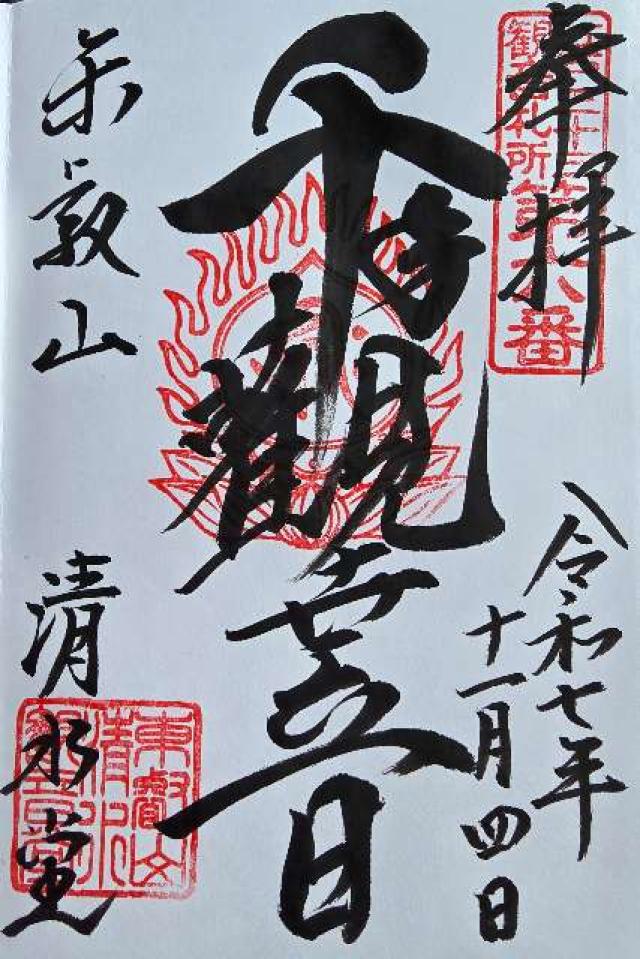 奉拝
千手観世音
東叡山
清水堂
令和七年
十一月四日
観音札所第六番
東叡山
清水